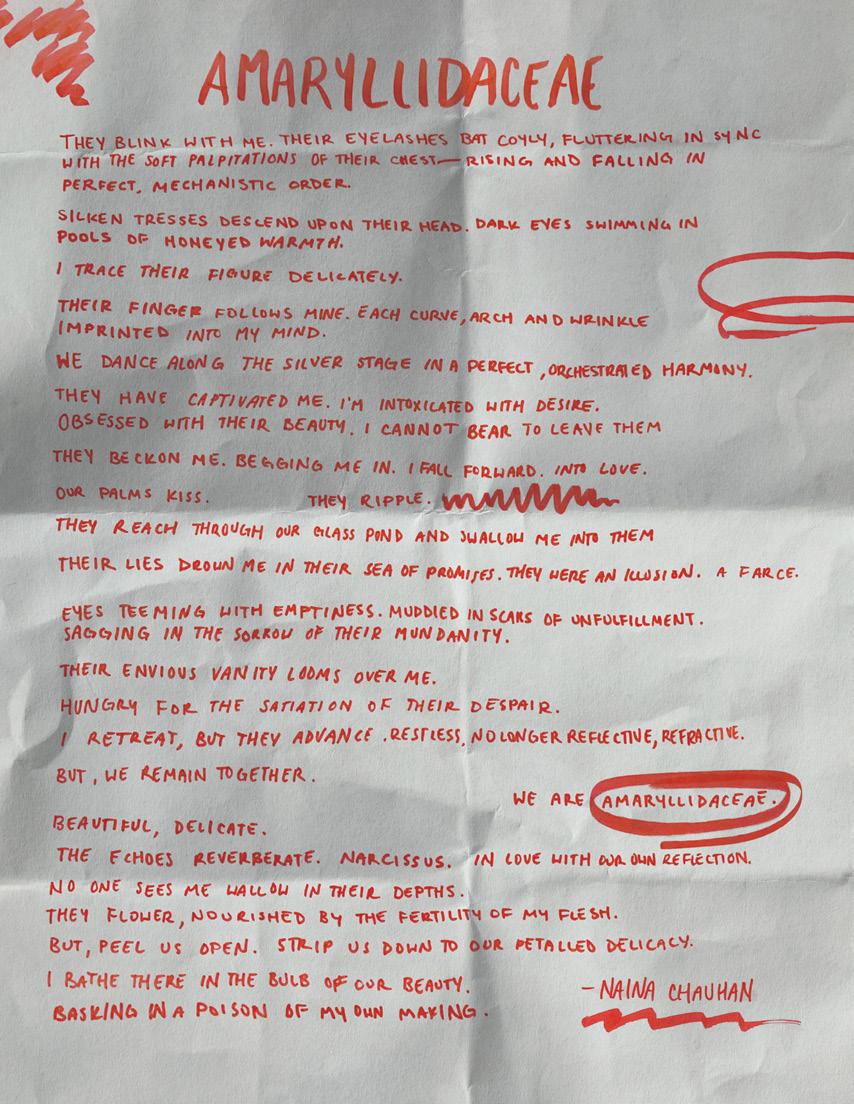 AMARYLLIDACEAE
THEY BLINK WITH ME. THEIR EYELASHES BAT COYLY, FLUTTERING IN SYNC
WITH THE SOFT PALPITATIONS OF THEIR CHEST— RISING AND FALLING IN
PERFECT, MECHANISTIC ORDER.
SILKEN TRESSES DESCEND UPON THEIR HEAD. DARK EYES SWIMMING IN
POOLS OF HONEYED WARMTH.
I TRACE THEIR FIGURE DELICATELY.
THEIR FINGER FOLLOWS MINE. EACH CURVE, ARCH AND WRINKLE
IMPRINTED INTO MY MIND.
WE DANCE ALONG THE SILVER STAGE IN A PERFECT, ORCHESTRATED HARMONY.
THEY HAVE CAPTIVATED ME. I'M INTOXICATED WITH DESIRE.
OBSESSED WITH THEIR BEAUTY. I CANNOT BEAR TO LEAVE THEM
THEY BECKON ME. BEGGING ME IN. I FALL FORWARD. INTO LOVE.
OUR PALMS KISS. THEY RIPPLE.
THEY REACH THROUGH OUR GLASS POND AND SWALLOW ME INTO THEM
THEIR LIES DROWN ME IN THEIR SEA OF PROMISES. THEY WERE AN ILLUSION. A FARCE.
EYES TEEMING WITH EMPTINESS. MUDDIED IN SCARS OF UNFULFILLMENT.
SAGGING IN THE SORROW OF THEIR MUNDANITY.
THEIR ENVIOUS VANITY LOOMS OVER ME.
HUNGRY FOR THE SATIATION OF THEIR DESPAIR.
I RETREAT, BUT THEY ADVANCE. RESTLESS, NO LONGER REFLECTIVE, REFRACTIVE.
BUT, WE REMAIN TOGETHER.
WE ARE AMARYLLIDACEAE.
BEAUTIFUL, DELICATE.
THE ECHOES REVERBERATE. NARCISSUS. IN LOVE WITH OUR OWN REFLECTION.
NO ONE SEES ME WALLOW IN THEIR DEPTHS.
THEY FLOWER, NOURISHED BY THE FERTILITY OF MY FLESH.
BUT, PEEL US OPEN. STRIP US DOWN TO OUR PETALLED DELICACY.
I BATHE THERE IN THE BULB OF OUR BEAUTY.
BASKING IN A POISON OF MY OWN MAKING.
- NAINA CHAUHAN